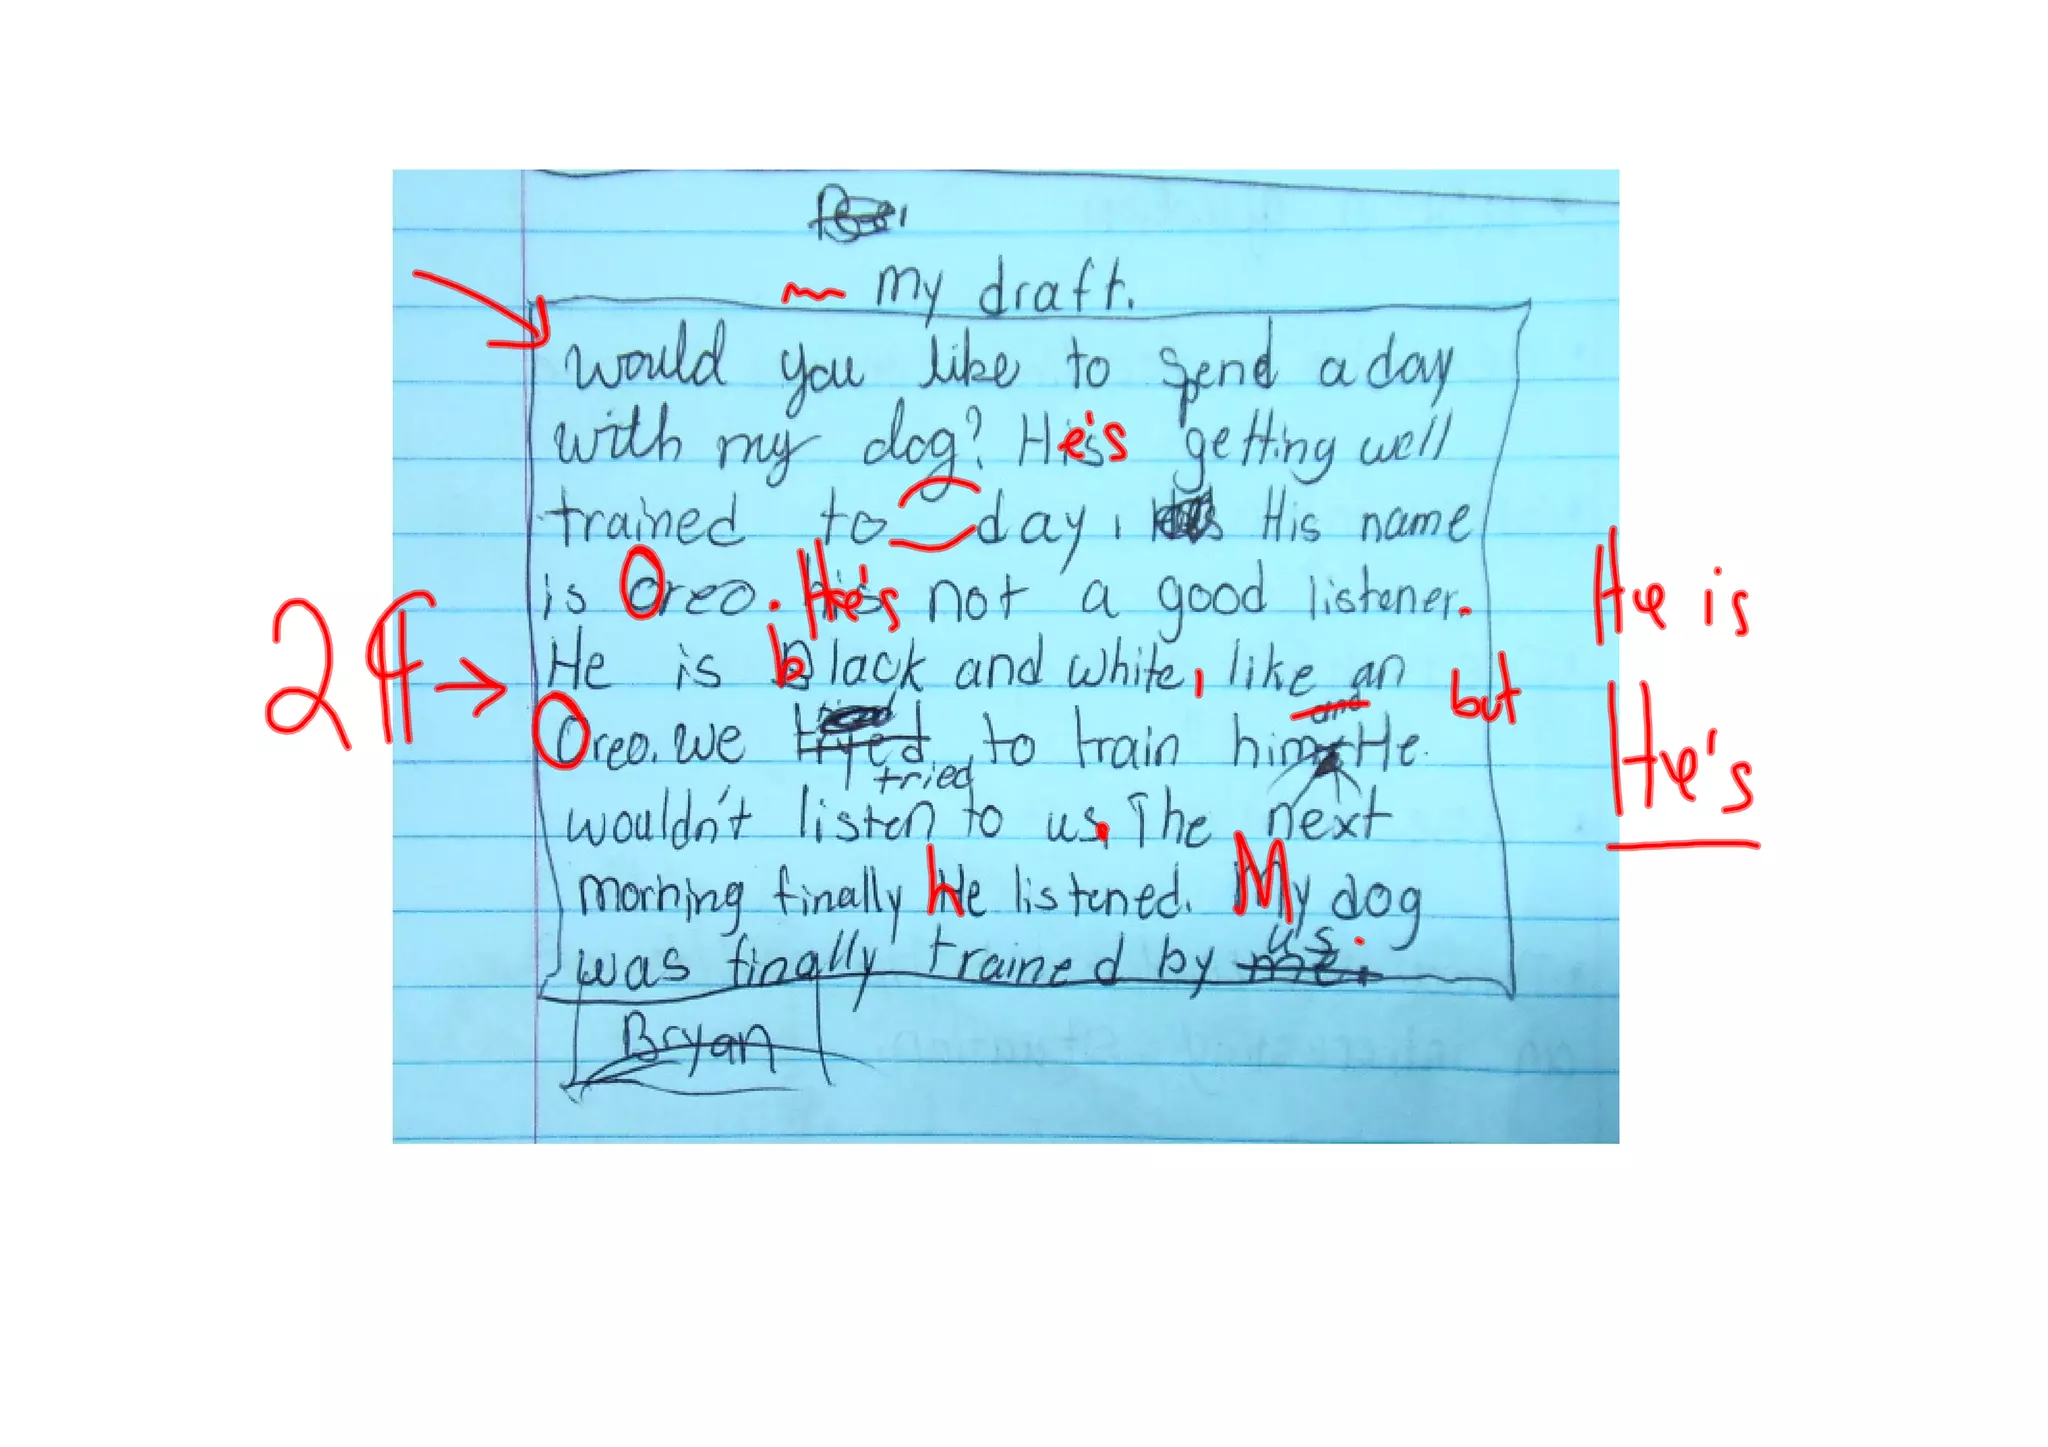 my draft.
Would you like to spend a day
with my dog? He's getting well
trained to day, His name
is Oreo. He's not a good listener.
He is
He is black and white, like an
2¶
and
but
Oreo. We tryed to train him He
He's
tried
wouldn't listen to us. The next
morning finally he listened. My dog
us.
was finally trained by me.
Bryan